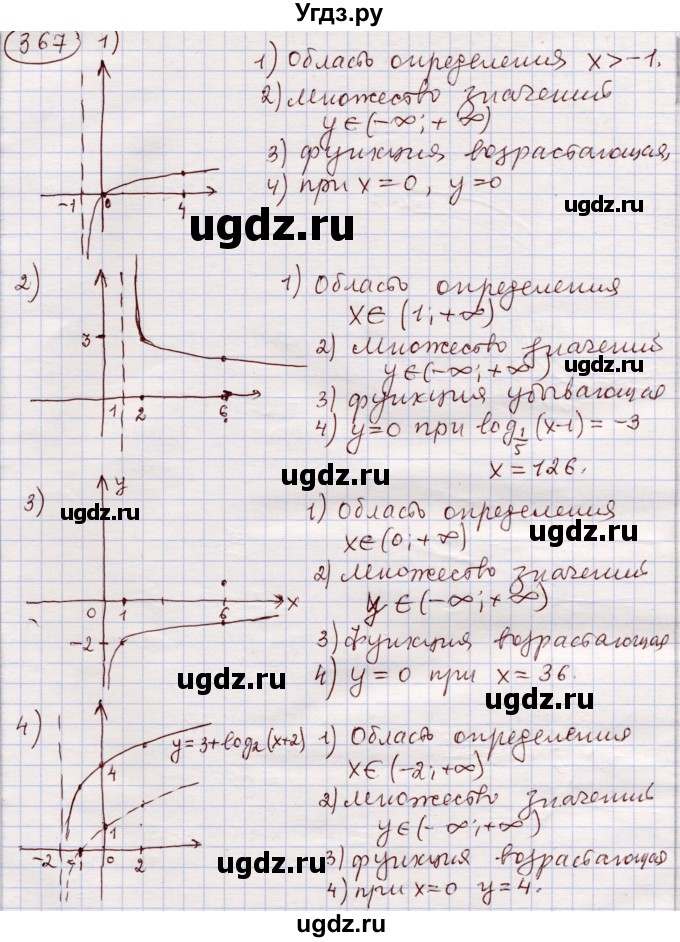 Угдз.ру
367 1)
1) Область определения x>-1.
2) Множество значений
y∈(-∞;+∞)
3) функция возрастающая,
4) при x=0, y=0
-1 0 4
ugdz.ru ugdz.ru
2)
1) Область определения
x∈(1;+∞)
3
2) множество значений
y∈(-∞;+∞) ugdz.ru
3) функция убывающая
1 2 6
4) y=0 при log 1/5 (x-1) = -3
ugdz.ru
x=126.
3) y
ugdz.ru
1) Область определения
x∈(0;+∞) ugdz.ru
2) множество значений
0 1 6 x
y∈(-∞;+∞)
-2
3) Функция возрастающая
ugdz.ru
4) y=0 при x=36.
ugdz.ru
4)
y=3+log₂(x+2)
1) Область определения
4
x∈(-2;+∞)
2) множество значений
1
y∈(-∞;+∞)
-2 -1 0 2
3) функция возрастающая
4) при x=0 y=4.
ugdz.ru ugdz.ru